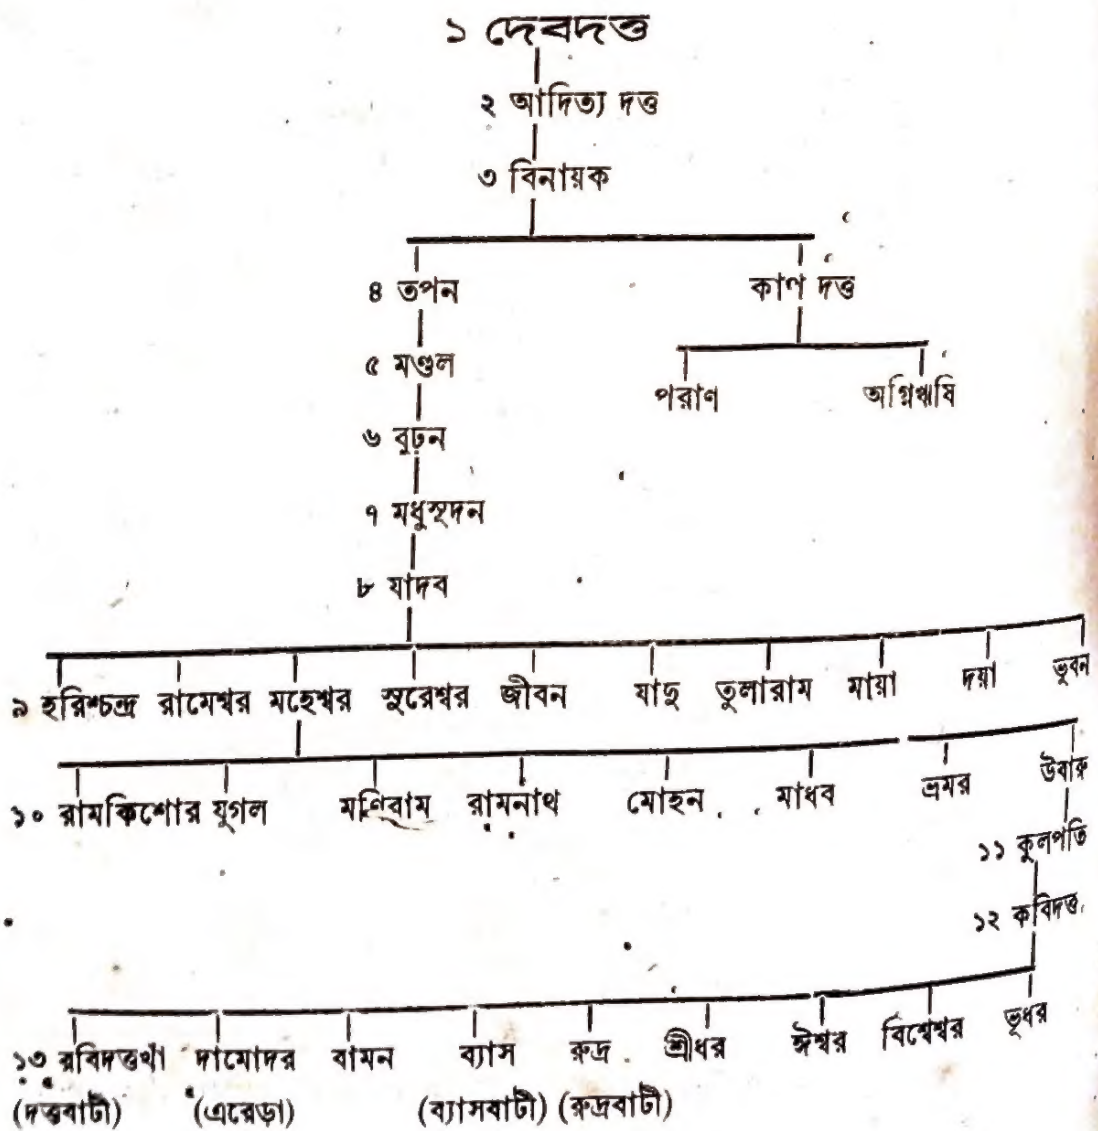 ১ দেবদত্ত
২ আদিত্য দত্ত
৩ বিনায়ক
৪ তপন কাণ দত্ত
৫ মণ্ডল
পরাণ অগ্নিঋষি
৬ বুঢ়ন
৭ মধুসূদন
৮ যাদব
৯ হরিশ্চন্দ্র রামেশ্বর মহেশ্বর সুরেশ্বর জীবন যাদু তুলারাম মায়া দয়া ভুবন
১০ রামকিশোর যুগল মণিরাম রামনাথ মোহন মাধব ভ্রমর উবারু
১১ কুলপতি
১২ কবিদত্ত
১৩ রবিদত্তখাঁ দামোদর বামন ব্যাস রুদ্র শ্রীধর ঈশ্বর বিশ্বেশ্বর ভূধর
(দত্তবাটী) (এরেড়া) (ব্যাসবাটী) (রুদ্রবাটী)